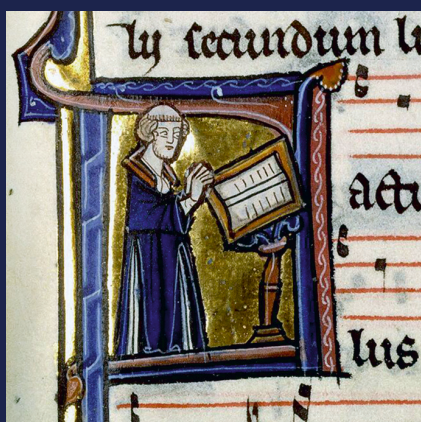 ly secundum lu
actu
lus